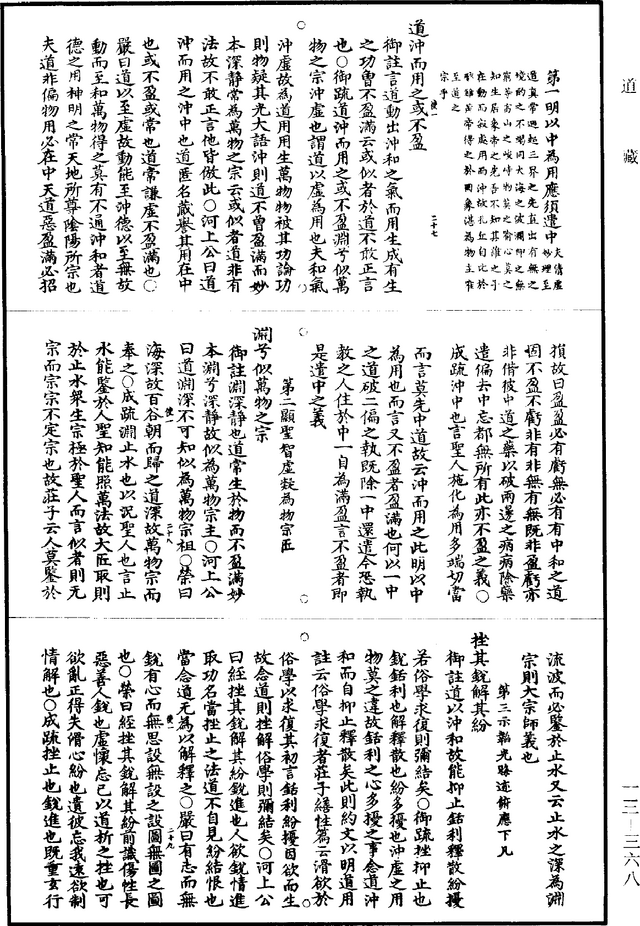 道藏
一三—三六八
第一明以中為用應須遣中夫倚虛妙理至
道真常迥起三界之先直出有無之
境的之不竭同大海之波瀾仰之無
窮等嵩山之峻峙物莫之喻心莫之
知生居象帝之先吾不知其誰之子
在動而寂處用而沖故孔丘自比於
至道之
宗乎
道沖而用之或不盈
御註言道動出沖和之氣而用生成有生
之功曾不盈滿云或似者於道不敢正言
也○御疏道沖而用之或不盈淵兮似萬
物之宗沖虛也謂道以虛為用也夫和氣
沖虛故為道用用生萬物物被其功論功
則物疑其光大語沖則道不曾盈滿而妙
本深靜常為萬物之宗云或似者道非有
法故不敢正言他皆倣此○河上公曰道
沖而用之沖中也道匿名藏譽其用在中
也或不盈或常也道常謙虛不盈滿也○
嚴曰道以至虛故動能至沖德以至無故
動而至和萬物得之莫有不通沖和者道
德之用神明之常天地所尊陰陽所宗也
夫道非偏物用必在中天道惡盈滿必招
損故曰盈盈必有虧無必有有中和之道
因不盈不虧非有非無有無既非盈虧亦
非借彼中道之藥以破兩邊之病病除藥
遣偏去中忘都無所有此亦不盈之義○
成疏沖中也言聖人施化為用多端切當
而言莫先中道故云沖而用之此明以中
為用也而言又不盈者盈滿也何以一中
之道破二偏之執既除一中還遣今恐執
教之人住於中一自為滿盈言不盈者即
是遣中之義
第二顯聖智虛凝為物宗匠
淵兮似萬物之宗
御註淵深靜也道常生於物而不盈滿妙
本淵兮深靜故似為萬物宗主○河上公
曰道淵深不可知似為萬物宗祖○榮曰
海深故百谷朝而歸之道深故萬物宗而
奉之○成疏淵止水也以況聖人也言止
水能鑒於人聖知能照萬法故大匠取則
於止水眾生宗極於聖人而言似者則无
宗而宗宗不定宗也故莊子云人莫鑒於
流波而必鑒於止水又云止水之深為淵
宗則大宗師義也
第三示韜光晦迹俯應下凡
挫其銳解其紛
御註道以沖和故能抑止銛利釋散紛擾
若俗學求復則彌結矣○御疏挫抑止也
銳銛利也解釋散也紛多擾也沖虛之用
物莫之違故銛利之心多擾之事念道沖
和而自抑止釋散矣此則約文以明道用
註云俗學求復者莊子繕性篇云滑欲於
俗學以求復其初言銛利紛擾因欲而生
故念道則挫解俗學則彌結矣○河上公
曰經挫其銳解其紛銳進也人欲銳情進
取功名當挫止之法道不自見紛結恨也
當念道无為以解釋之○嚴曰有志而無
銳有心而無思設無設之設圖無圖之圖
也○榮曰經挫其銳解其紛前識傷性長
惡善人銳也虛懷忘己以道折之挫也可
欲亂正得失滑心紛也遺彼忘我遠欲制
情解也○成疏挫止也銳進也既重玄行